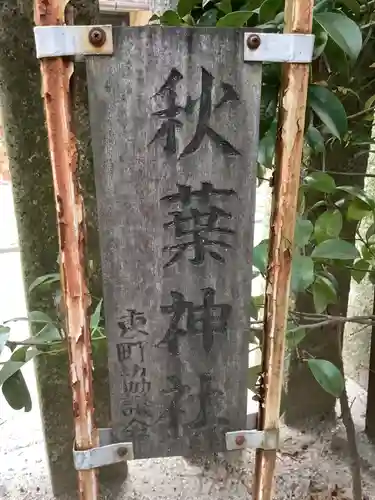 秋葉神社
東町協議会